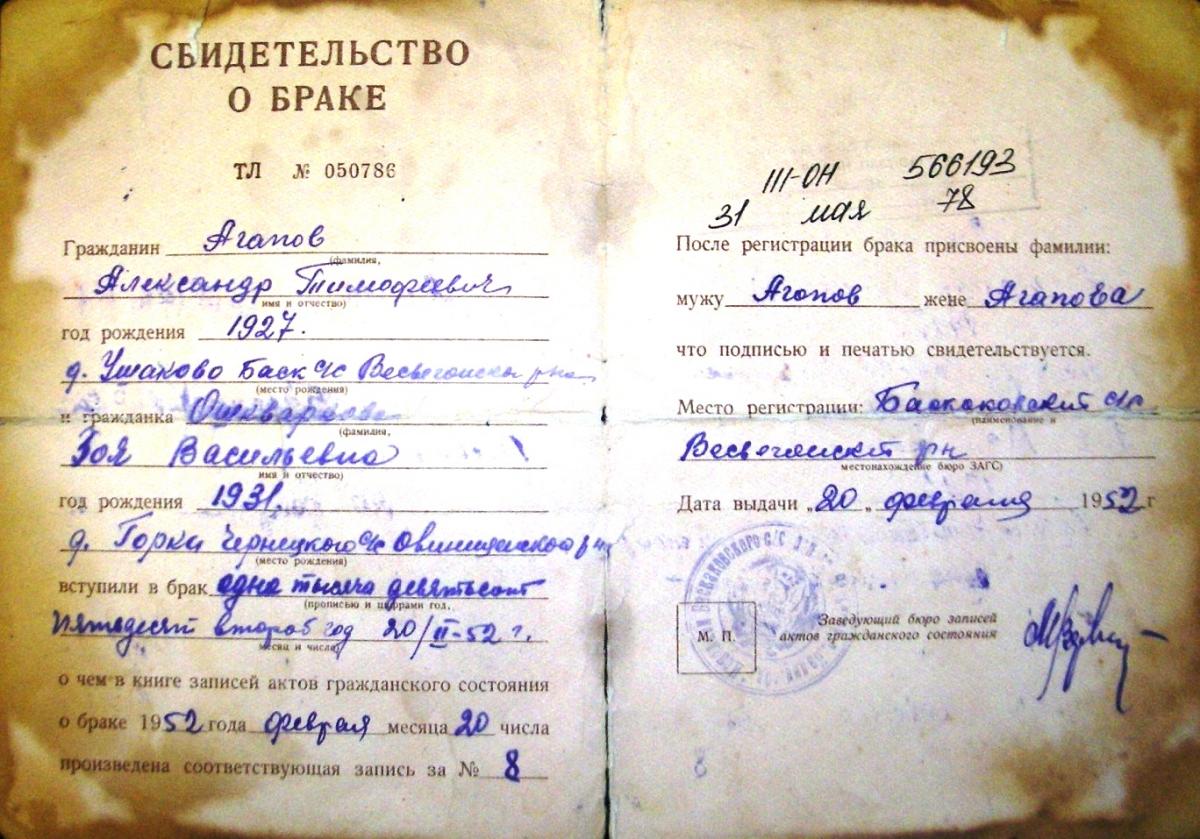 СВИДЕТЕЛЬСТВО
О БРАКЕ
ТЛ № 050786
Гражданин Агапов
(фамилия,
Александр Тимофеевич
имя и отчество)
год рождения 1927.
д. Ушаково Баск с/с Весьегонск р-на
(место рождения)
и гражданка Ошкваркова
(фамилия,
Зоя Васильевна
имя и отчество)
год рождения 1931.
д. Горка Чернецкого с/с Овинищенского р-на
(место рождения)
вступили в брак одна тысяча девятьсот
(прописью и цифрами год,
пятьдесят второй год 20/II-52 г.
месяц и число)
о чем в книге записей актов гражданского состояния
о браке 1952 года февраля месяца 20 числа
произведена соответствующая запись за № 8
III-ОН 566193
31 мая 78
После регистрации брака присвоены фамилии:
мужу Агапов жене Агапова
что подписью и печатью свидетельствуется.
Место регистрации: Баскаковский с/с
(наименование и
Весьегонский р-н
местонахождение бюро ЗАГС)
Дата выдачи „20„ февраля 1952 г
Баскаковского с/с
М. П.
Заведующий бюро записей
актов гражданского состояния